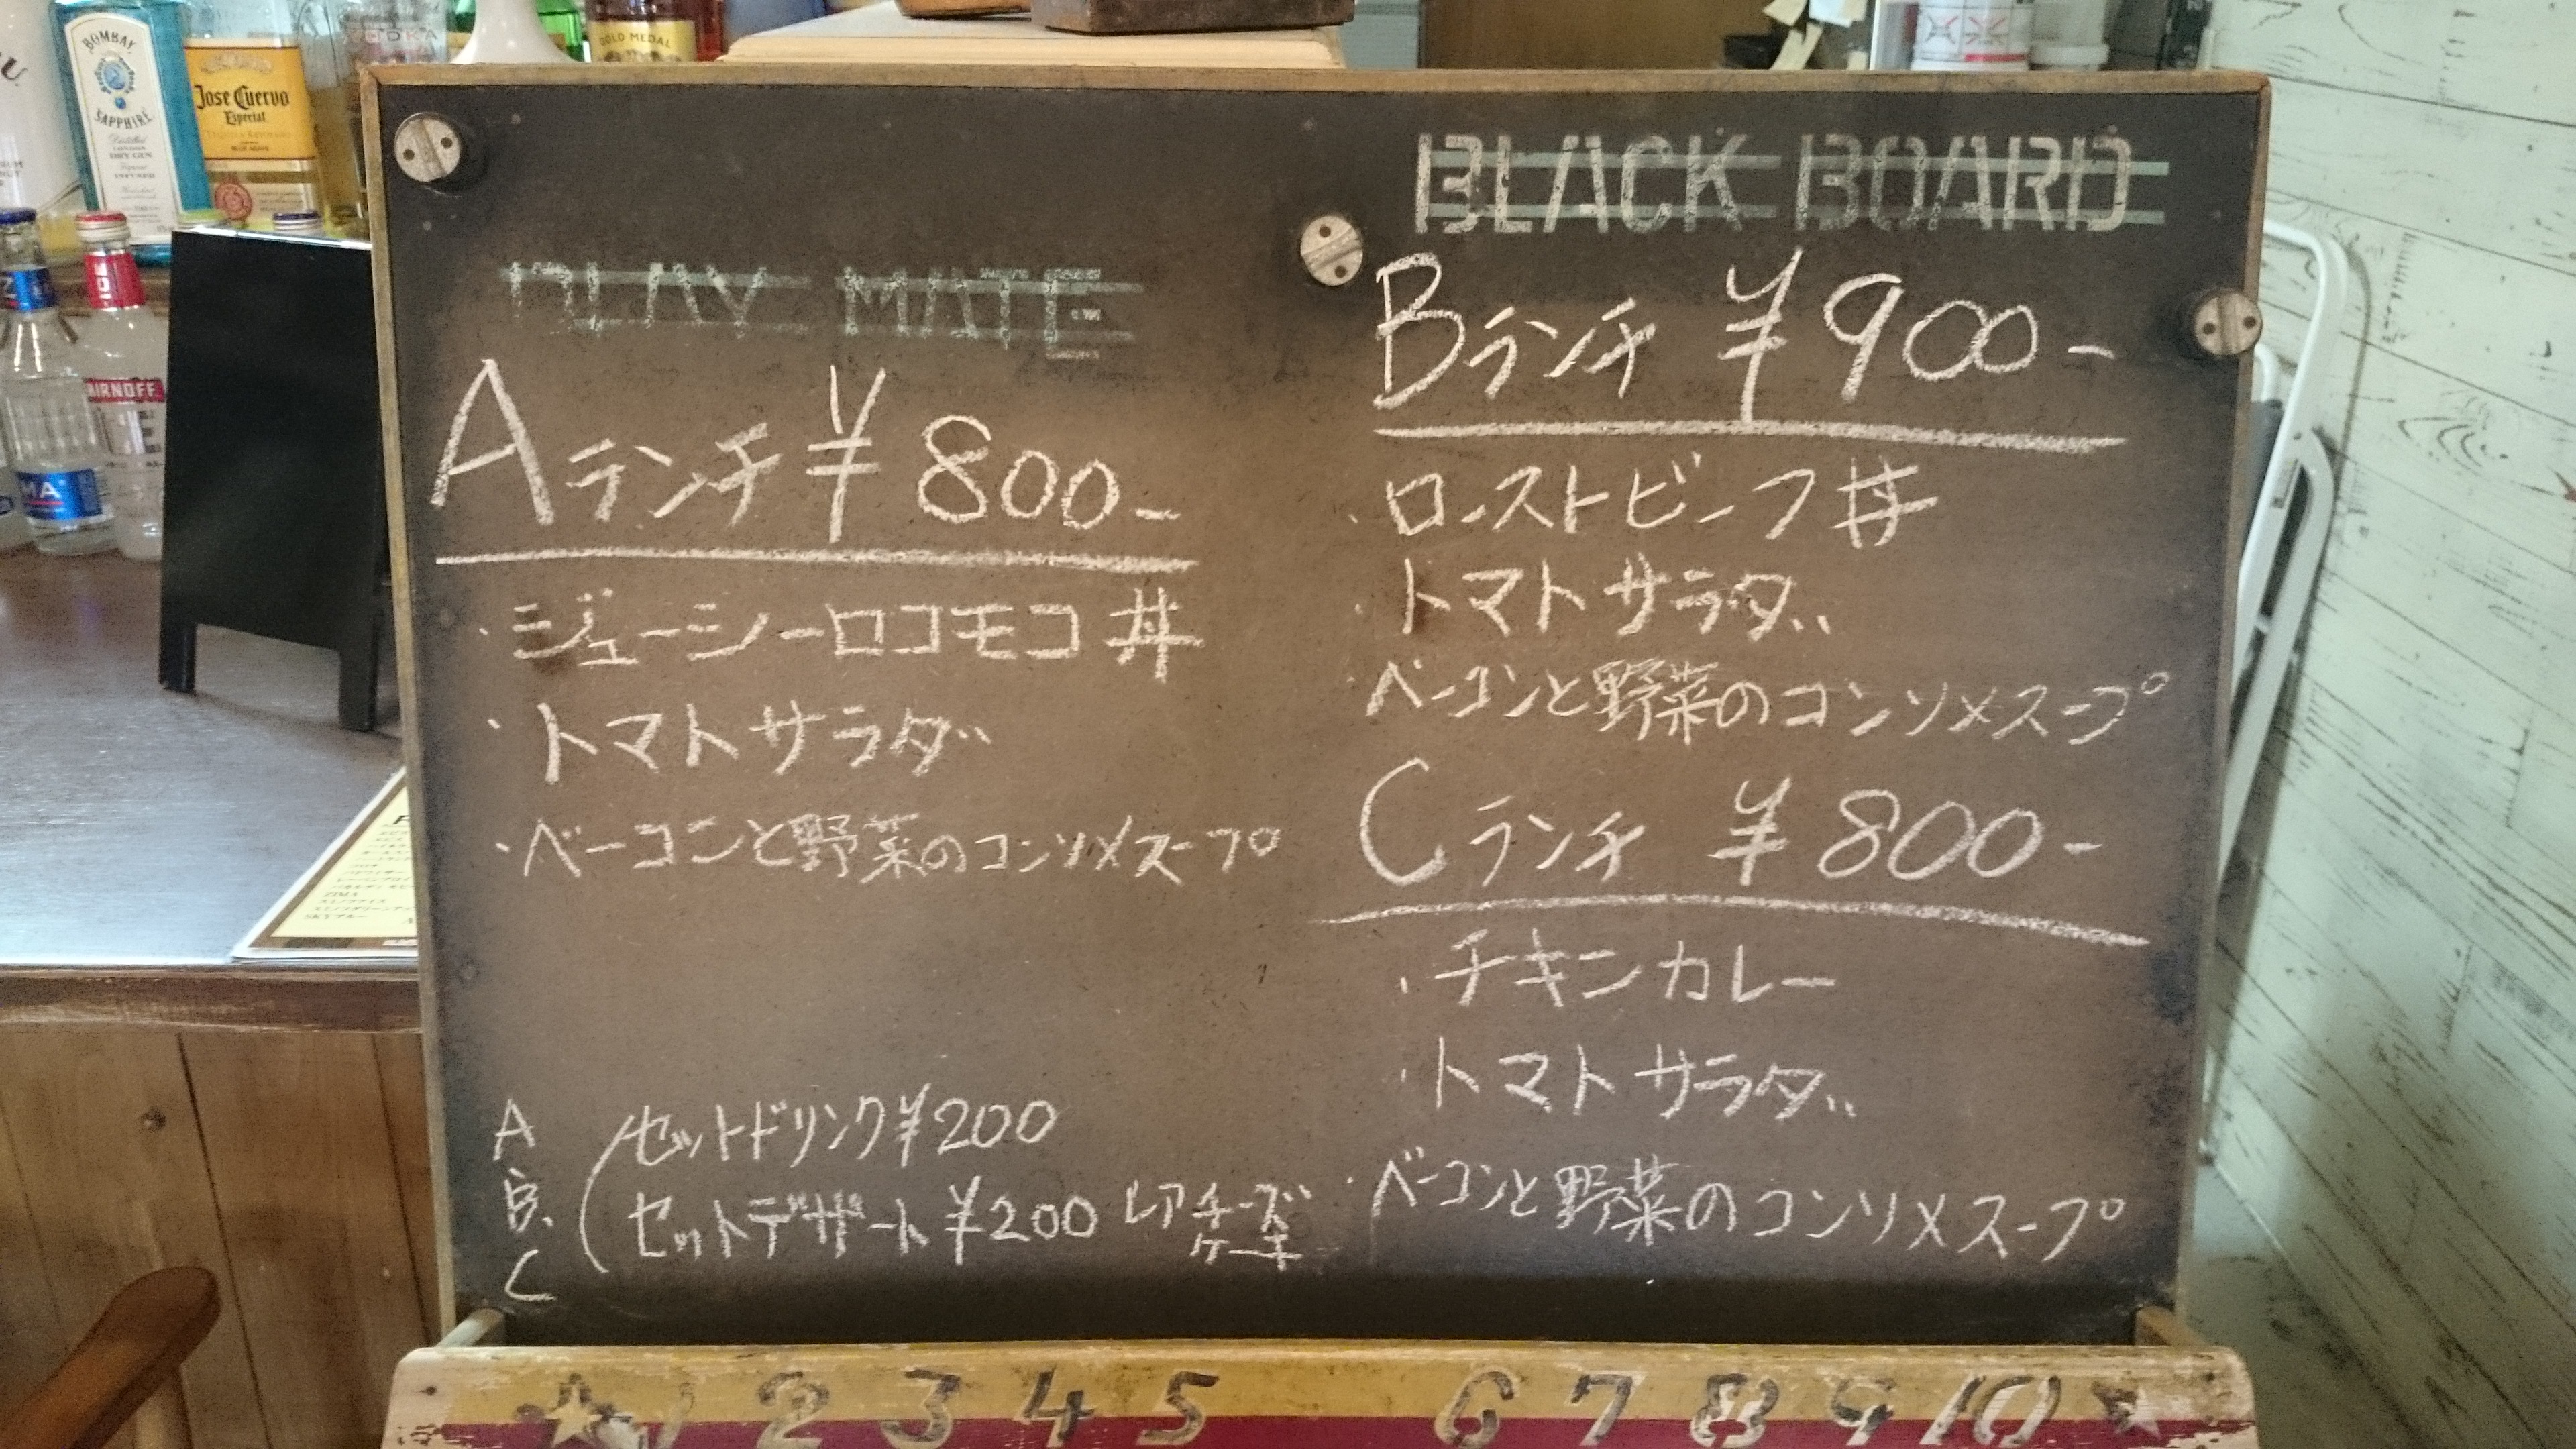 BOMBAY
SAPPHIRE
Distilled
LONDON
DRY GIN
Jose Cuervo
Especial
BLUE AGAVE
VODKA
GOLD MEDAL
PLAY MATE
Aランチ ¥800-
・ジューシーロコモコ丼
・トマトサラダ
・ベーコンと野菜のコンソメスープ
A
B.
C
セットドリンク¥200
セットデザート¥200 レアチーズ
ケーキ
BLACK BOARD
Bランチ ¥900-
・ローストビーフ丼
・トマトサラダ
・ベーコンと野菜のコンソメスープ
Cランチ ¥800-
・チキンカレー
・トマトサラダ
・ベーコンと野菜のコンソメスープ
1 2 3 4 5 6 7 8 9 10